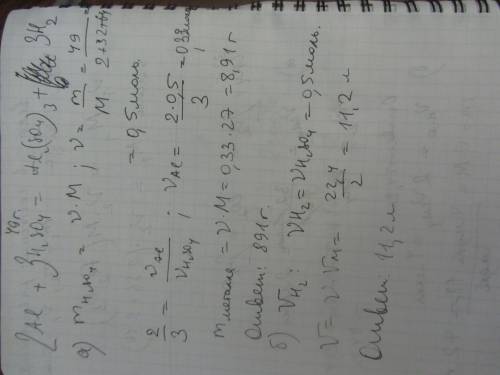 49г.
2Al + 3H₂SO₄ = Al₂(SO₄)₃ + 3H₂
а) m H₂SO₄ = ν · M ; ν = m/M = 49/2+32+
= 0,5 моль.
2/3 = ν Al/ν H₂SO₄ ; ν Al = 2·0,5/3 = 0,33
m металла = ν · M = 0,33 · 27 = 8,91 г
Ответ: 8,91 г.
б) V H₂ : ν H₂ = ν H₂SO₄ = 0,5 моль.
V = ν · Vм = 22,4/2 = 11,2 л
Ответ: 11,2 л